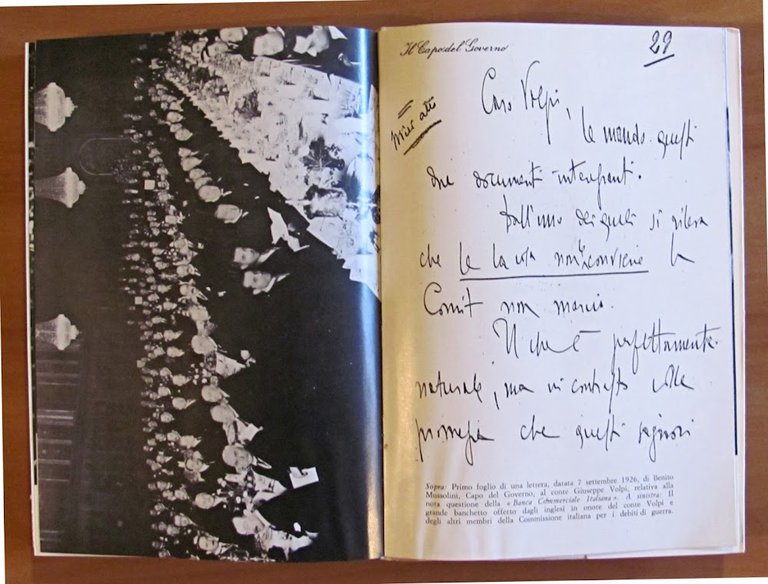 Il Capo del Governo
29
Caro Volpi,
le mando questi
due documenti interessanti.
Dall'uno dei quali si rileva
che se la cosa non le conviene la
Comit non marcia.
Il che è perfettamente
naturale, ma in contrasto colle
che questi signori
Sopra: Primo foglio di una lettera, datata 7 settembre 1926, di Benito
Mussolini, Capo del Governo, al conte Giuseppe Volpi, relativa alla
nota questione della « Banca Commerciale Italiana ». A sinistra: Il
grande banchetto offerto dagli inglesi in onore del conte Volpi e
degli altri membri della Commissione italiana per i debiti di guerra.